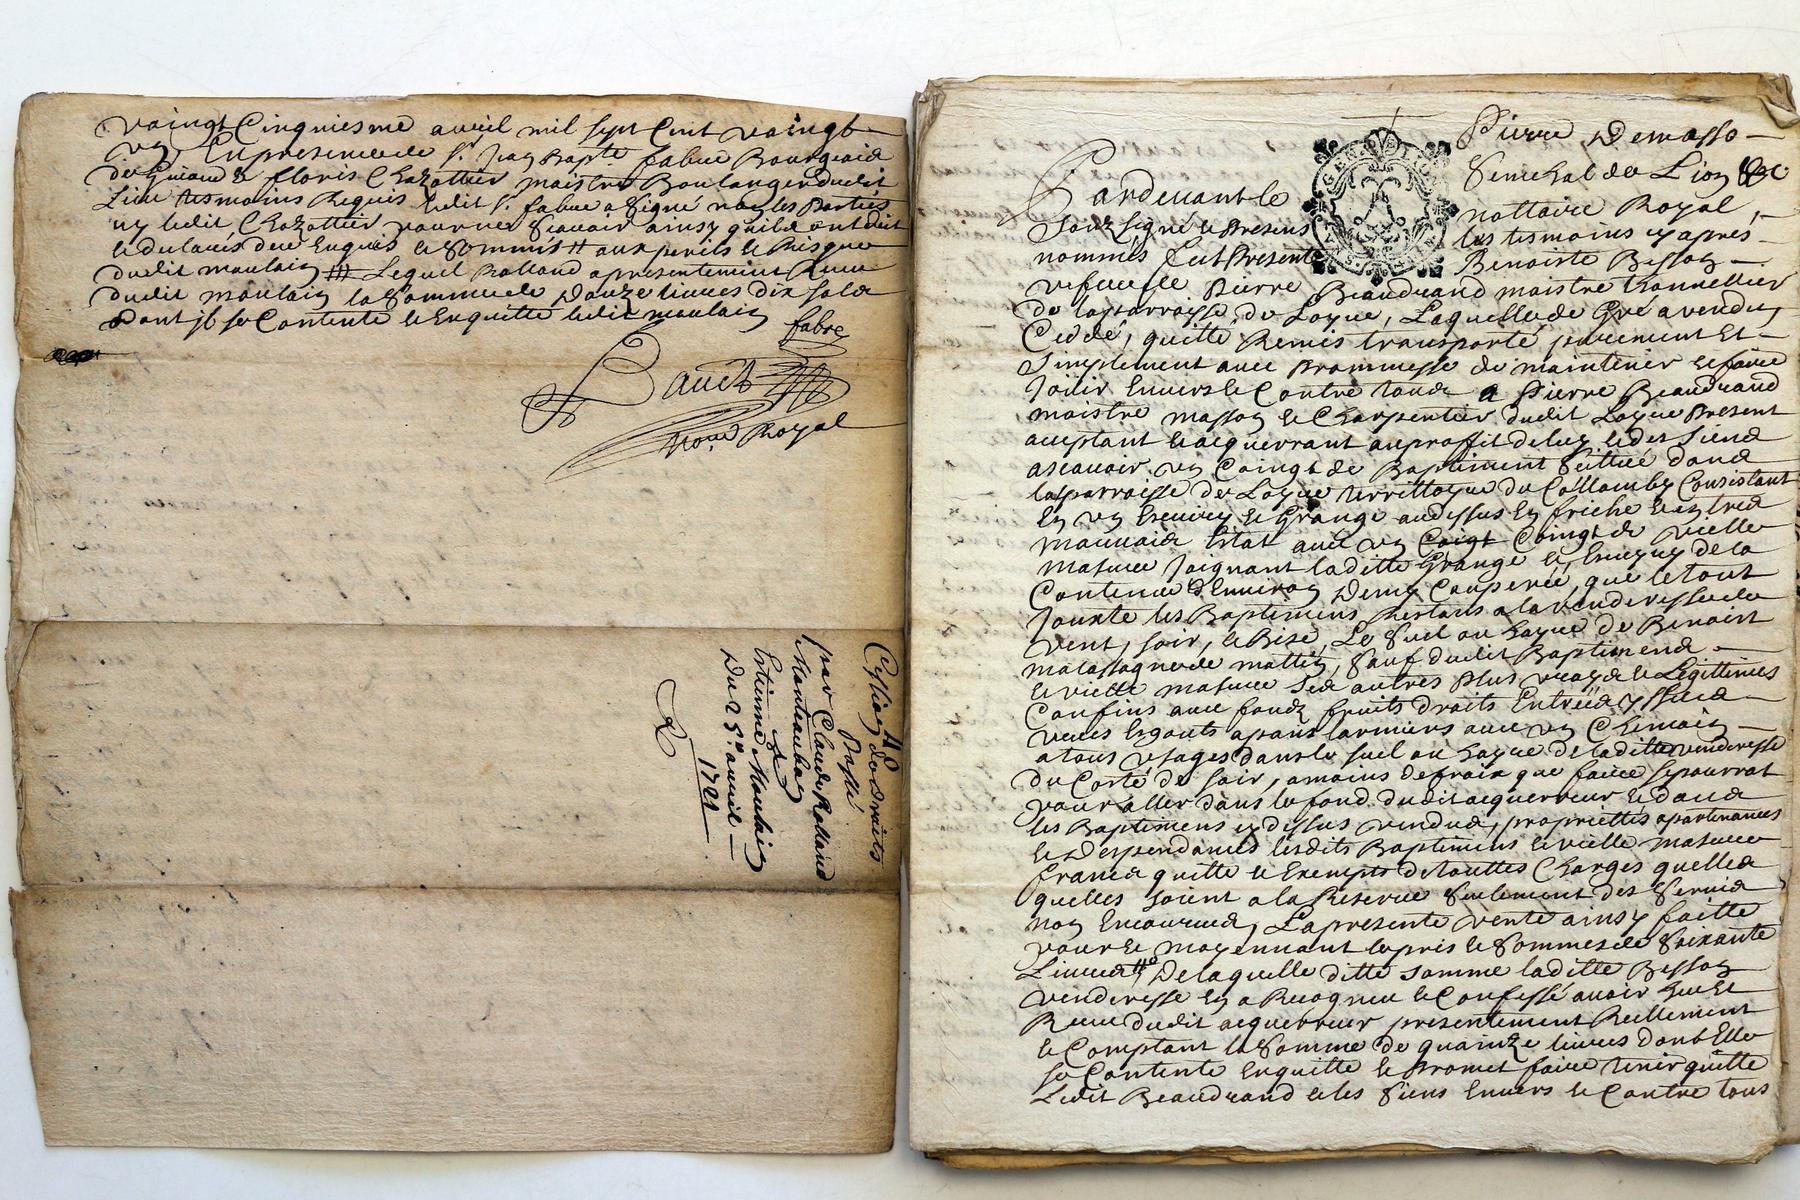 vaingt Cinquiesme avril mil sept Cent vaingt
un En presence de Sr. Jean Bapte fabre Bourgeois
de & floris Chazottier maistre Boulanger dudit
Lieu tesmoins Requis ledit Sr. fabre a Signé non les Parties
ny ledit Chazottier pour ne Scavoir ainsy quils ont dit
le declarés de ce Enquis & Sommis # aux perils & Risques
dudit moulain ### Lequel Rolland a presentement Receu
dudit moulain la Somme de Douze livres dix sols
Dont il se Contente & Enquitte ledit moulain
fabre
Royal
Cession de droits
Passé
par Claude Rolland
Montauban
a
Estienne Moulain
Du 25e. avril
1721
Pierre Demasso
Senechal de Lion &c
Pardevant le
nottaire Royal,
Souz Signé & Presens
les tesmoins cy apres
nommés fut Presente
Benoiste Besson
vefve de Pierre Beaudrand maistre thonnellier
de la parroisse de Loyue, Laquelle de Gré a vendu,
Ceddé, quitté Remis transporté purement Et
Simplement avec Prommesse de maintenir & faire
Jouir Envers & Contre tous a Pierre Beaudrand
maistre masson & Charpentier dudit Loyue Present
acceptant & acquerrant au proffit de luy & des Siens
ascavoir un Coingt de Baptiment Scittué dans
la parroisse de Loyue territtoyre du Collomby Consistant
En un & Grange au dessus En friche & En tres
mauvais Estat avec un Coingt Coingt de vielle
masure Joignant laditte Grange & de la
Contenue d'Environ Demy Couperée, que le tout
Jouxte les Baptimens Restans a la venderesse de
vent, soir, & Bize, Le Suel ou hayue de Benoist
de mattin, Sauf dudit Baptimens
& vielle masure Ses autres Plus vrays & Legittimes
Confins avec fondz fruits droits Entrées yssues
veues Esgouts apans larmiers avec un Chemain
a tous usages dans le Suel ou hayue de laditte venderesse
du Corté de soir, a moins de frais que faire se pourrat
pour aller dans le fond dudit acquerreur & dans
les Baptimens cy dessus vendus, propriettés apartenances
& Despendances lesdits Baptimens & vielle masure
francs quitte & Exempts de touttes Charges quelles
quelles soient a la Reserve Seulement des Servis
non Encourus, La presente vente ainsy faitte
pour & moyennant le pris & Somme de Soixante
Livres De laquelle ditte somme laditte Besson
venderesse En a Recogneu & Confessé avoir Heu Et
Receu dudit acquerreur presentement Reellement
& Comptant la Somme de quainze livres dont Elle
se Contente Enquitte & Promet faire tenir quitte
Ledit Beaudrand & les Siens Envers & Contre tous